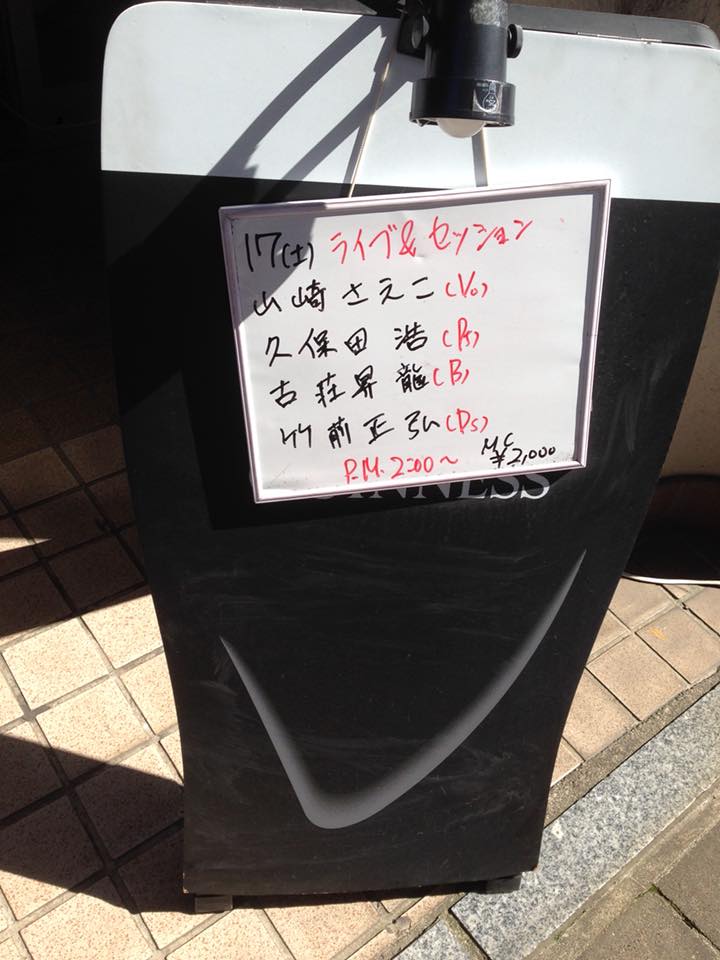 17(土) ライブ&セッション
山崎さえこ(Vo)
久保田 浩(Ps)
古荘昇龍(B)
竹前正弘(Ds)
P.M. 2:00〜 M.C ¥2,000
GUINNESS